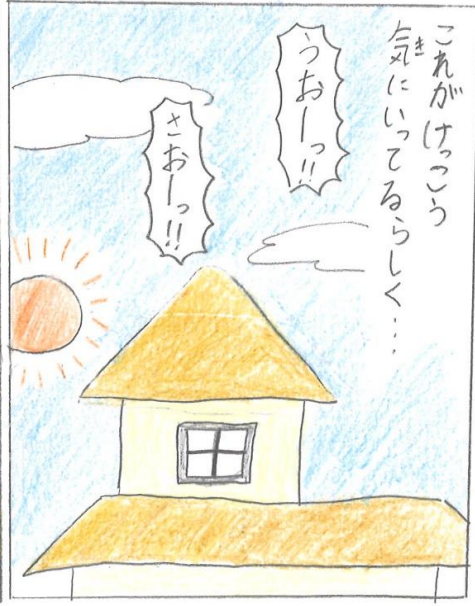 これがけっこう
気にいってるらしく…
き
うおーっ!!
さおーっ!!